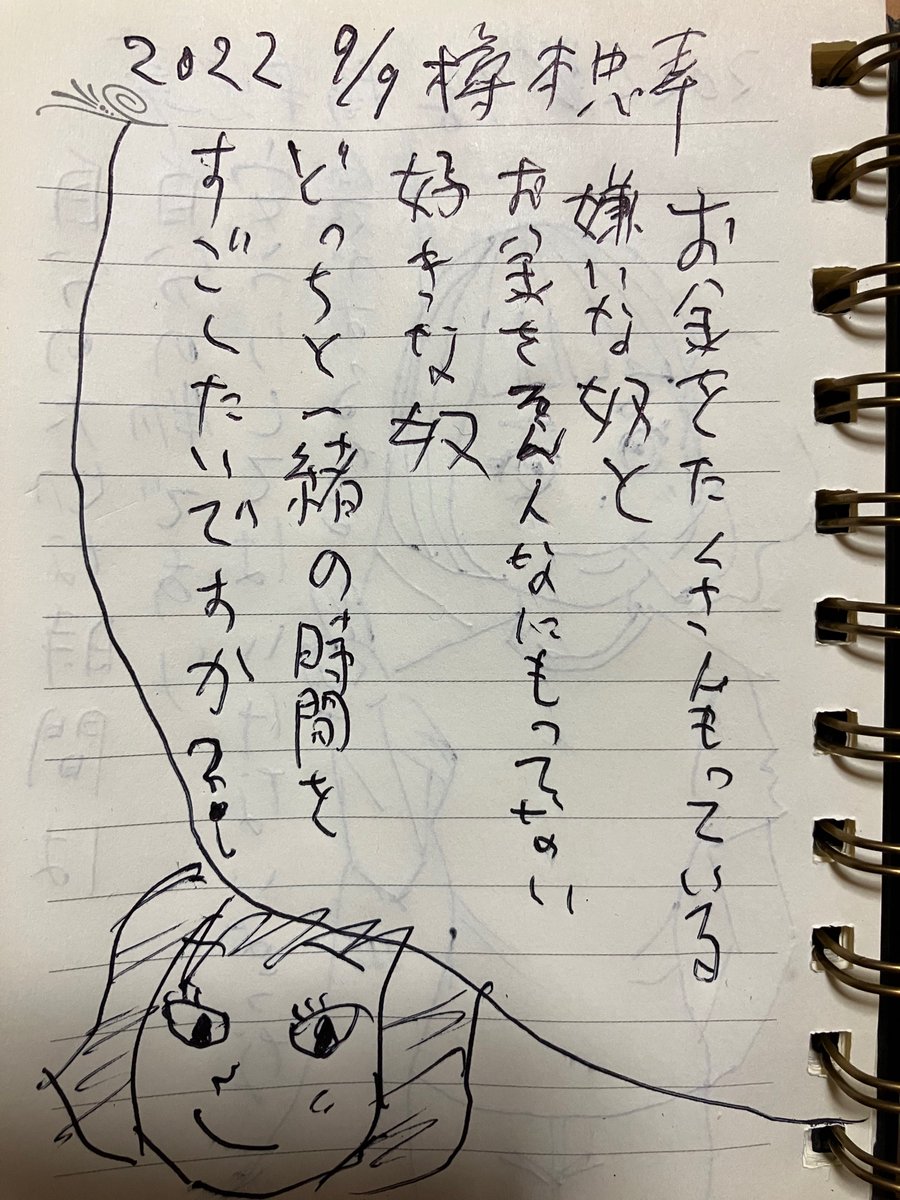 2022 9/9 樽本忠幸
お金をたくさんもっている
嫌いな奴と
お金をそんなにもってない
好きな奴
どっちと一緒の時間を
すごしたいですか?